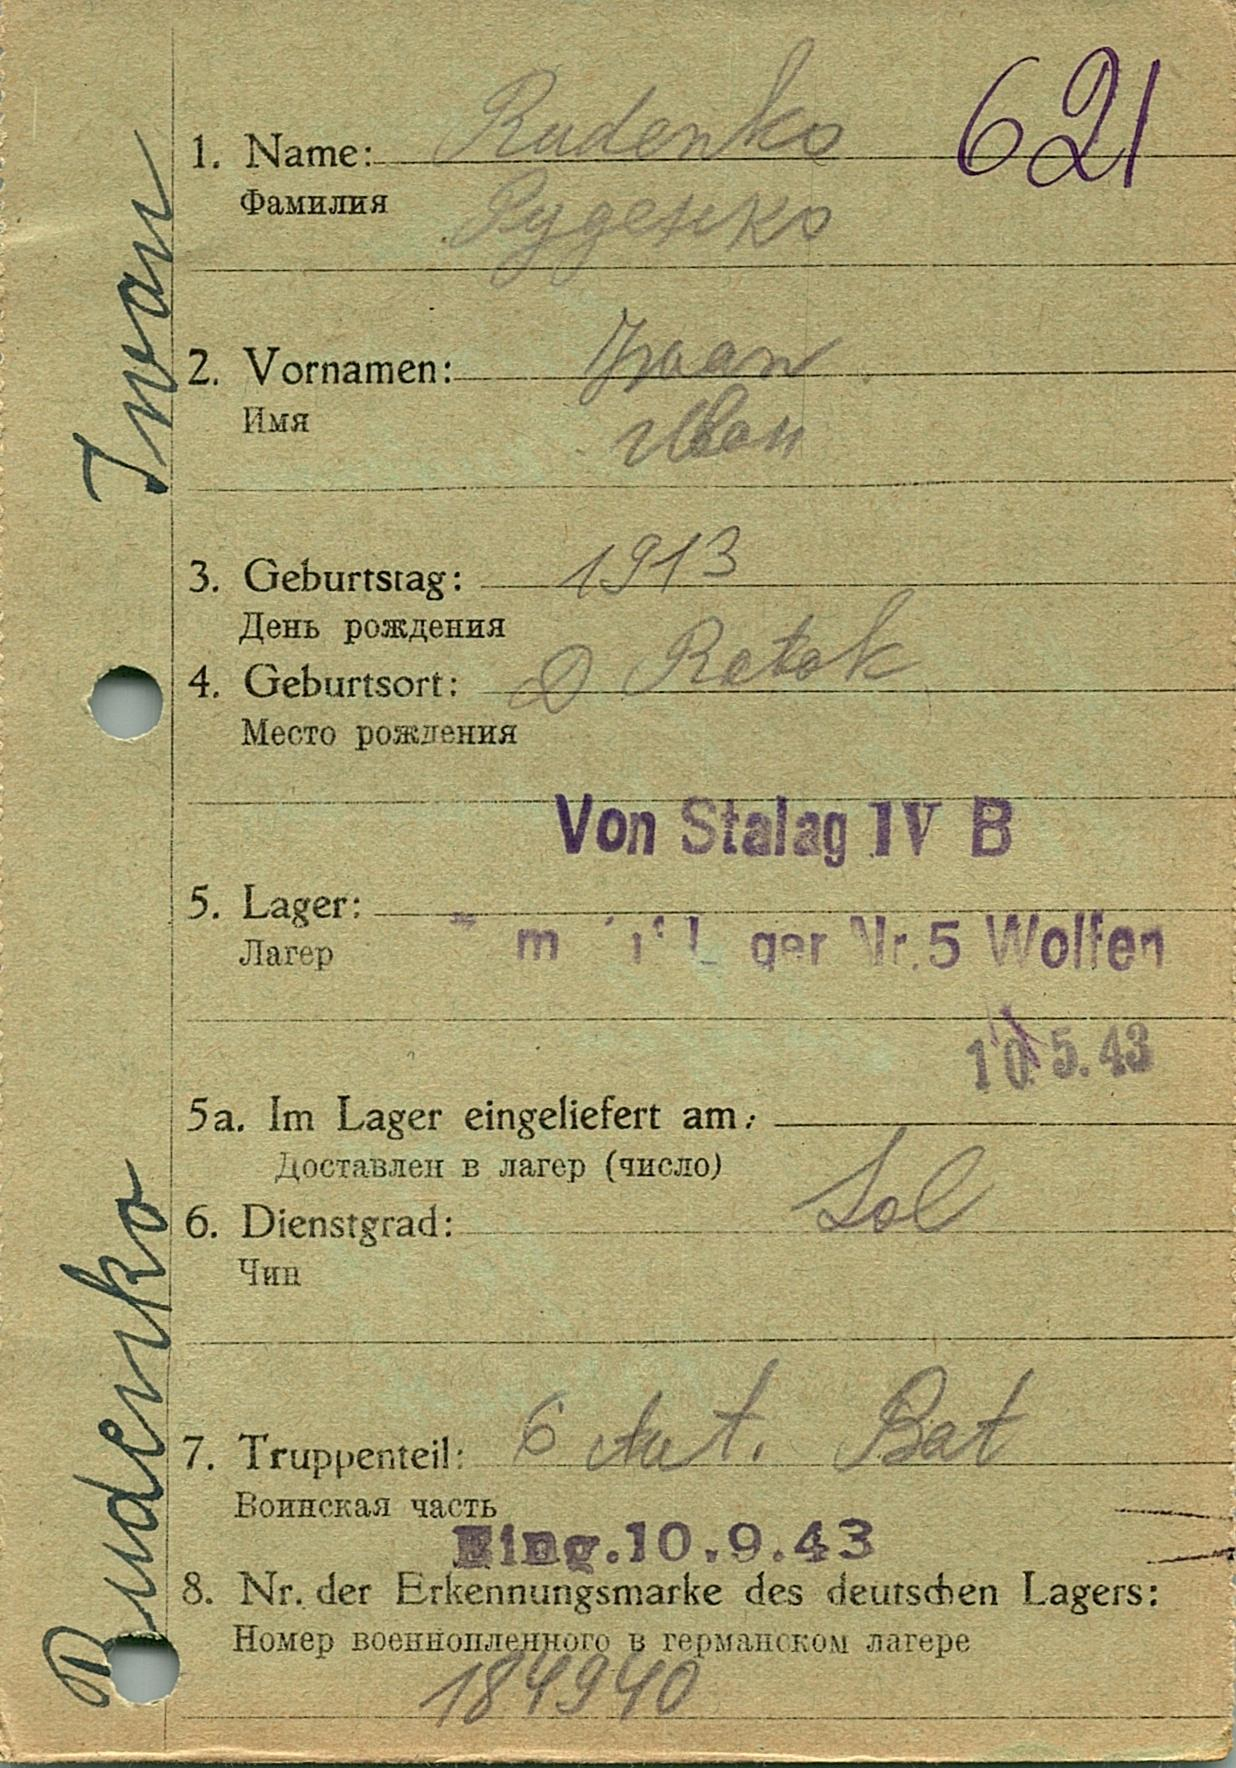 621
1. Name: Rudenko
Фамилия Руденко
2. Vornamen: Iwan
Имя Иван
3. Geburtstag: 1913
День рождения
4. Geburtsort: Rotok
Место рождения
Von Stalag IV B
5. Lager:
Лагер Nr. 5 Wolfen
10.5.43
5a. Im Lager eingeliefert am:
Доставлен в лагер (число)
6. Dienstgrad: Sol
Чин
7. Truppenteil: 6 Aut. Bat
Воинская часть
Eing. 10.9.43
8. Nr. der Erkennungsmarke des deutschen Lagers:
Номер военнопленного в германском лагере
184940
Rudenko Iwan